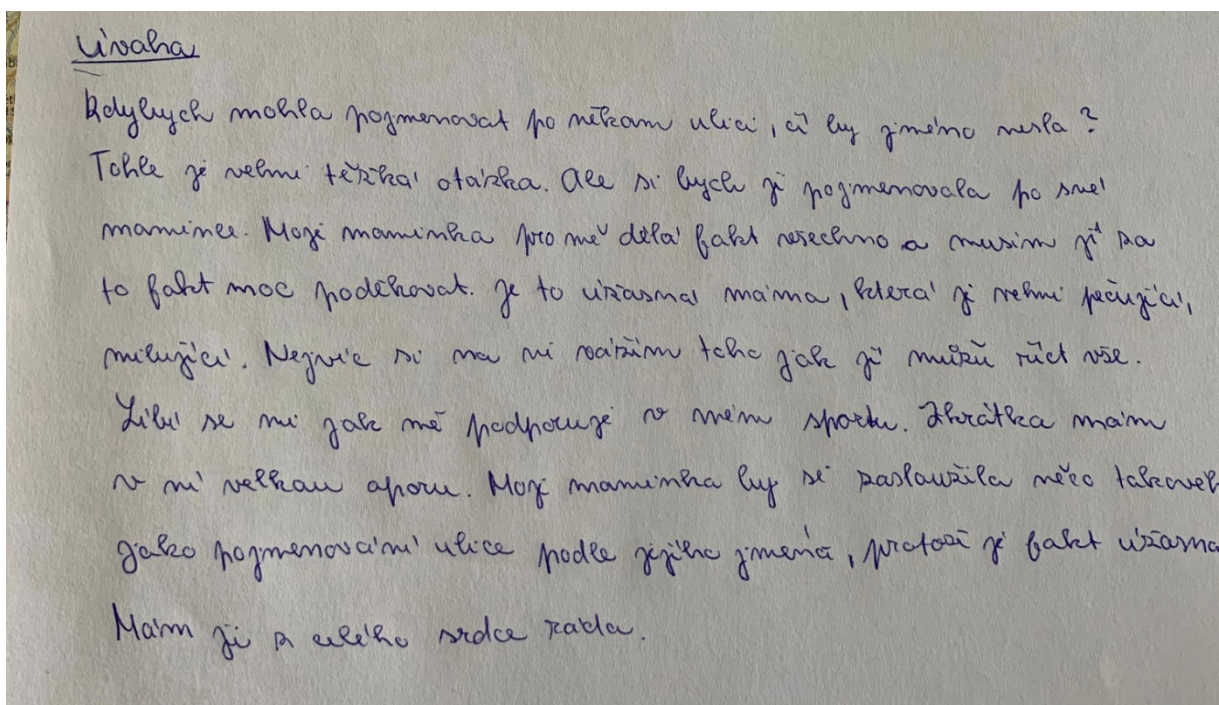 Úvaha
Kdybych mohla pojmenovat po někom ulici, čí by jméno nesla?
Tohle je velmi těžká otázka. Ale si bych ji pojmenovala po své
mamince. Moje maminka pro mě dělá fakt všechno a musím jí za
to fakt moc poděkovat. Je to úžasná máma, která je velmi pečující,
milující. Nejvíc si na ní vážím toho jak jí můžu říct vše.
Líbí se mi jak mě podporuje v mém sportu. Zkrátka mám
v ní velkou oporu. Moje maminka by si zasloužila něco takovéh
jako pojmenování ulice podle jejího jména, protože je fakt úžasná
Mám ji z celého srdce ráda.